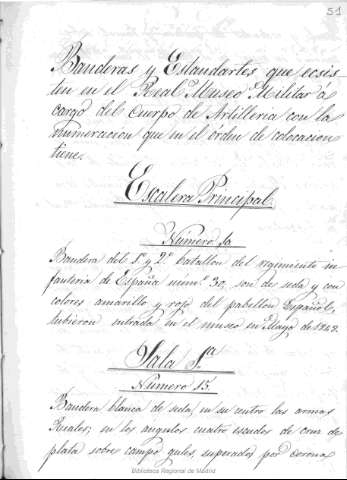 51
Banderas y Estandartes que ecsis
ten en el Real Museo Militar a
cargo del Cuerpo de Artilleria con la
numeracion que en el orden de colocacion
tiene.
Escalera Principal
Número
Bandera del 1º y 2º batallon del regimiento in
fanteria de España num.º 30, son de seda y con
colores amarillo y rojo del pabellon Español,
tubieron entrada en el museo en Mayo de
Sala 1.ª
Número 15
Bandera blanca de seda, en su centro las armas
Reales; en los angulos cuatro escudos de cruz de
plata sobre campo gules, superados por corona
Biblioteca Regional de Madrid